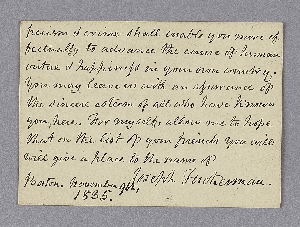 person & crime shall enable you more ef
fectually to advance the cause of human
virtue & happiness in your own country.
You may leave us with an assurance of
the sincere esteem of all who have known
you here. For myself, allow me to hope
that on the list of your friends you will
will give a place to the name of
Joseph Tuckerman.
Boston. November 9th,
1835.